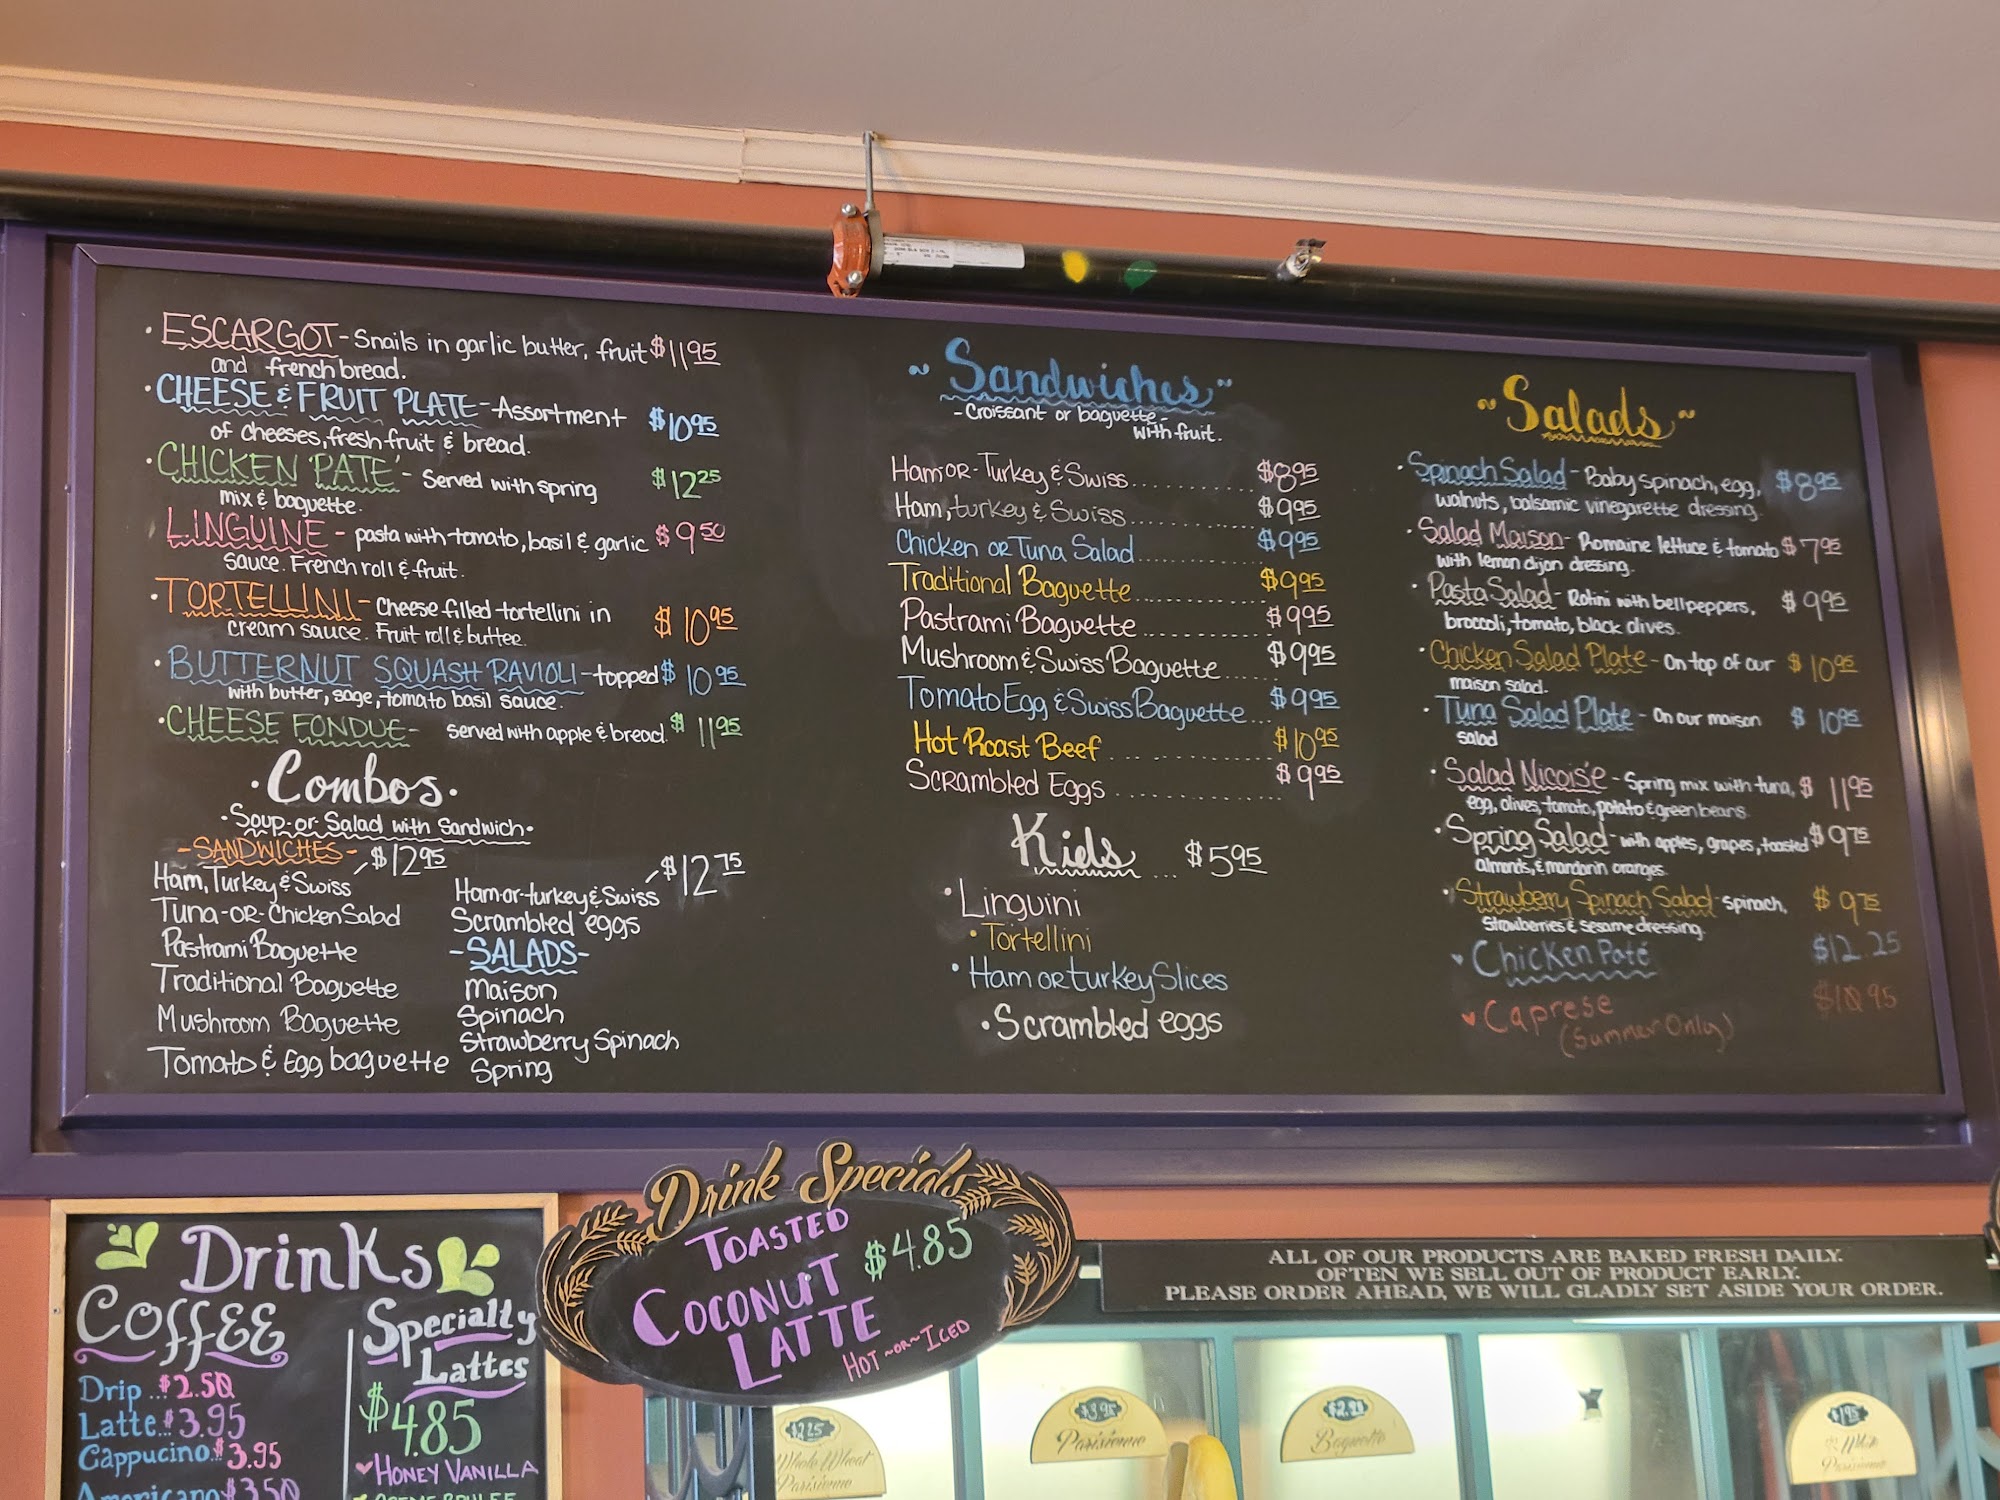 • ESCARGOT - Snails in garlic butter, fruit $11.95
and french bread.
• CHEESE & FRUIT PLATE - Assortment $10.95
of cheeses, fresh fruit & bread.
• CHICKEN PATE' - Served with spring $12.25
mix & baguette.
• LINGUINE - pasta with tomato, basil & garlic $9.50
sauce. French roll & fruit.
• TORTELLINI - Cheese filled tortellini in $10.95
cream sauce. Fruit roll & butter.
• BUTTERNUT SQUASH RAVIOLI - topped $10.95
with butter, sage, tomato basil sauce.
• CHEESE FONDUE - served with apple & bread. $11.95
• Combos •
• Soup-or-Salad with Sandwich •
- SANDWICHES - $12.95
Ham, Turkey & Swiss
Tuna-OR-Chicken Salad
Pastrami Baguette
Traditional Baguette
Mushroom Baguette
Tomato & Egg baguette
$12.75
Ham-or-turkey & Swiss
Scrambled eggs
- SALADS -
Maison
Spinach
Strawberry Spinach
Spring
~ Sandwiches ~
- Croissant or baguette -
with fruit.
Ham-OR-Turkey & Swiss $8.95
Ham, turkey & Swiss $9.95
Chicken OR Tuna Salad $9.95
Traditional Baguette $9.95
Pastrami Baguette $9.95
Mushroom & Swiss Baguette $9.95
Tomato Egg & Swiss Baguette $9.95
Hot Roast Beef $10.95
Scrambled Eggs $9.95
Kids ... $5.95
• Linguini
• Tortellini
• Ham OR turkey Slices
• Scrambled eggs
~ Salads ~
• Spinach Salad - Baby spinach, egg, $8.95
walnuts, balsamic vinegarette dressing.
• Salad Maison - Romaine lettuce & tomato $7.95
with lemon dijon dressing.
• Pasta Salad - Rotini with bell peppers, $9.95
broccoli, tomato, black olives.
• Chicken Salad Plate - On top of our $10.95
maison salad.
• Tuna Salad Plate - On our maison $10.95
salad
• Salad Nicoise - Spring mix with tuna, $11.95
egg, olives, tomato, potato & green beans.
• Spring Salad - with apples, grapes, toasted $9.75
almonds, & mandarin oranges.
• Strawberry Spinach Salad - spinach, $9.75
Strawberries & sesame dressing.
Chicken Paté $12.25
Caprese $10.95
(Summer Only)
Drinks
COFFEE
Drip...$2.50
Latte..$3.95
Cappucino.$3.95
Americano $3.50
Specialty
Lattes
$4.85
HONEY VANILLA
Drink Specials
TOASTED
COCONUT
LATTE
$4.85
HOT ~OR~ ICED
ALL OF OUR PRODUCTS ARE BAKED FRESH DAILY.
OFTEN WE SELL OUT OF PRODUCT EARLY.
PLEASE ORDER AHEAD, WE WILL GLADLY SET ASIDE YOUR ORDER.
$2.25
Whole Wheat
Parisienne
$3.95
Parisienne
$2.95
Baguette
$1.95
1/2 White
Parisienne